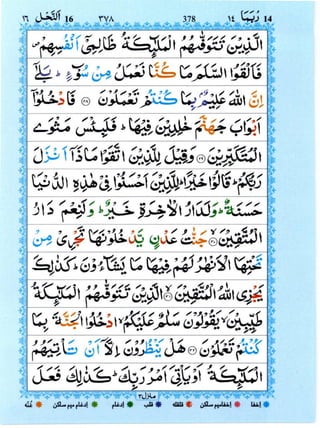 النحل 16 ٣٧٨ 378 ربما ١٤ 14
الَّذِیْنَ تَتَوَفّٰىهُمُ الْمَلٰٓىٕكَةُ ظَالِمِیْۤ اَنْفُسِهِمْ۪
فَاَلْقَوُا السَّلَمَ مَا كُنَّا نَعْمَلُ مِنْ سُوْٓءٍؕ بَلٰۤى
اِنَّ اللّٰهَ عَلِیْمٌۢ بِمَا كُنْتُمْ تَعْمَلُوْنَ ۝۲۸ فَادْخُلُوْۤا
اَبْوَابَ جَهَنَّمَ خٰلِدِیْنَ فِیْهَاؕ فَلَبِئْسَ مَثْوَى
الْمُتَكَبِّرِیْنَ ۝۲۹ وَقِیْلَ لِلَّذِیْنَ اتَّقَوْا مَاذَاۤ اَنْزَلَ
رَبُّكُمْؕ قَالُوْا خَیْرًاؕ لِلَّذِیْنَ اَحْسَنُوْا فِیْ هٰذِهِ الدُّنْیَا
حَسَنَةٌؕ وَلَدَارُ الْاٰخِرَةِ خَیْرٌؕ وَلَنِعْمَ دَارُ
الْمُتَّقِیْنَ ۝۳۰ جَنّٰتُ عَدْنٍ یَّدْخُلُوْنَهَا تَجْرِیْ مِنْ
تَحْتِهَا الْاَنْهٰرُ لَهُمْ فِیْهَا مَا یَشَآءُوْنَؕ كَذٰلِكَ
یَجْزِی اللّٰهُ الْمُتَّقِیْنَ ۝۳۱ الَّذِیْنَ تَتَوَفّٰىهُمُ الْمَلٰٓىٕكَةُ
طَیِّبِیْنَۙ یَقُوْلُوْنَ سَلٰمٌ عَلَیْكُمُۙ ادْخُلُوا الْجَنَّةَ بِمَا
كُنْتُمْ تَعْمَلُوْنَ ۝۳۲ هَلْ یَنْظُرُوْنَ اِلَّاۤ اَنْ تَاْتِیَهُمُ
الْمَلٰٓىٕكَةُ اَوْ یَاْتِیَ اَمْرُ رَبِّكَؕ كَذٰلِكَ فَعَلَ
منزل ٣
اخفا اخفا میم ساکن قلقلہ قلب ادغام ادغام میم ساکن غنہ